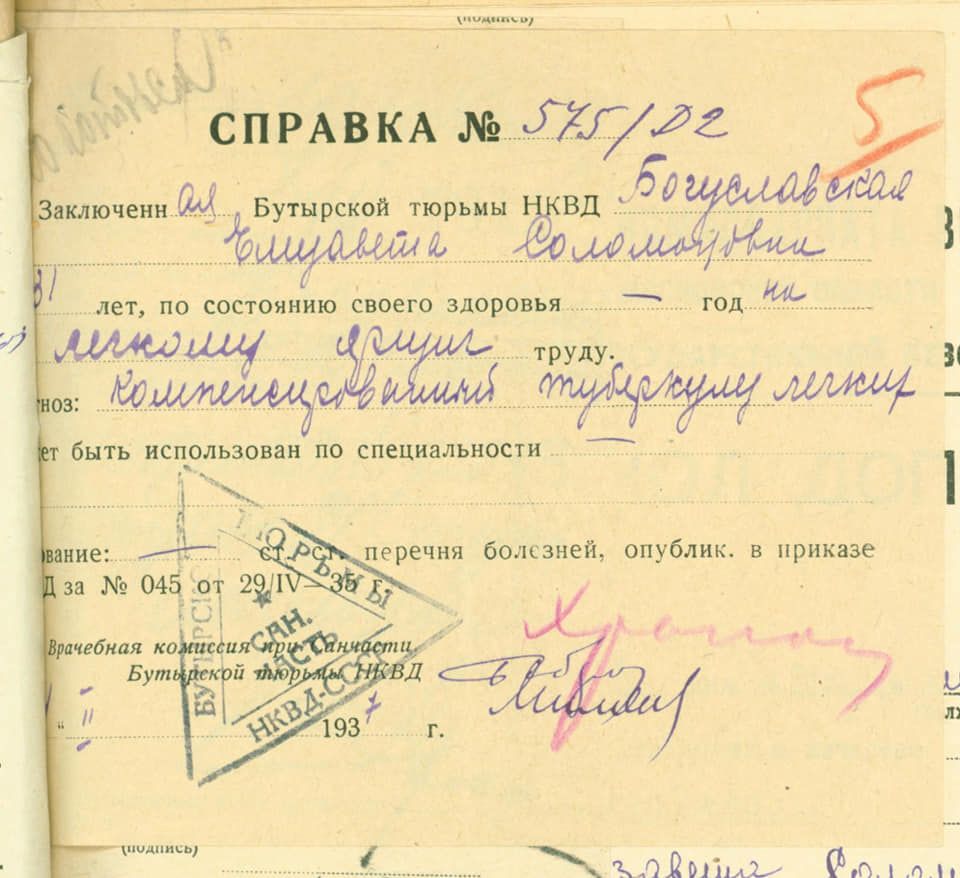 (подпись)
5
СПРАВКА № 575/D2
Заключенн ая Бутырской тюрьмы НКВД Богуславская
Елизавета Соломоновна
31 лет, по состоянию своего здоровья — год на
легкому труду.
ноз: компенсированный туберкулез легких
ет быть использован по специальности —
вание: — ст. ст. перечня болезней, опублик. в приказе
Д за № 045 от 29/IV—35 г.
Врачебная комиссия при Санчасти
Бутырской тюрьмы НКВД
" II 1937 г.
БУТЫРСК
ТЮРЬМЫ
САН.
ЧАСТЬ
НКВД-СССР
(подпись)